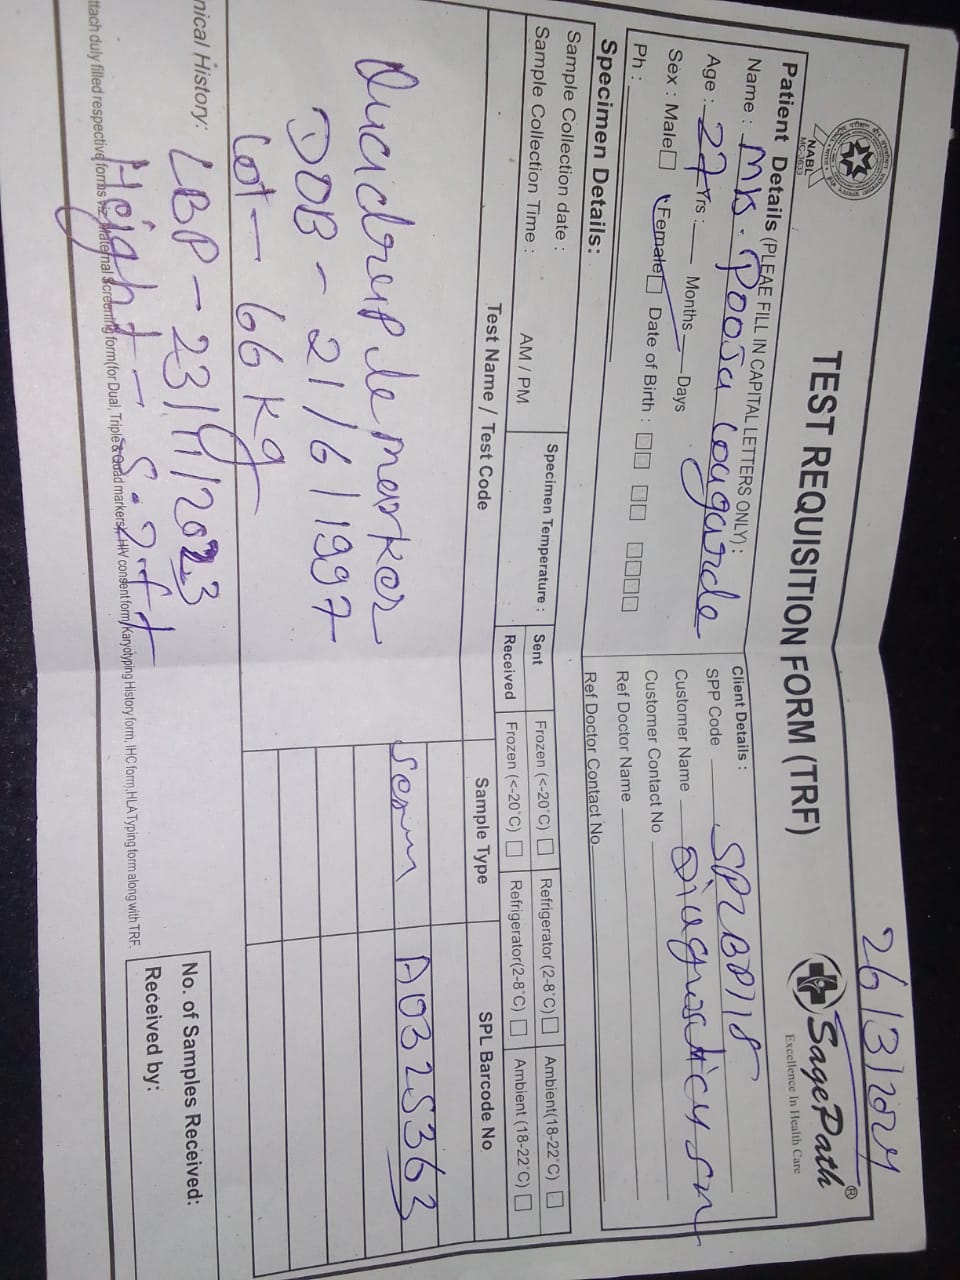 26/3/2024
NABL
MC-3633
TEST REQUISITION FORM (TRF)
SagePath®
Excellence In Health Care
Patient Details (PLEAE FILL IN CAPITAL LETTERS ONLY):
Name : Mrs. Pooja Lougarde
Age : 27 Yrs : Months Days
Sex : Male Female Date of Birth :
Ph :
Client Details :
SPP Code
Customer Name Diagnostics
Customer Contact No
Ref Doctor Name
Ref Doctor Contact No
Specimen Details:
Sample Collection date :
Sample Collection Time : AM / PM
Specimen Temperature :
Sent Frozen (<-20°C) Refrigerator (2-8°C) Ambient(18-22°C)
Received Frozen (<-20°C) Refrigerator(2-8°C) Ambient (18-22°C)
Test Name / Test Code Sample Type SPL Barcode No
Quadreple marker serum A0325363
DOB - 21/6/1997
wt - 66 kg
nical History: LBP - 23/11/2023
Height - 5.2ft
ttach duly filled respective forms viz. Maternal Screening form(for Dual, Triple & Quad markers), HIV consent form, Karyotyping History form, IHC form, HLA Typing form along with TRF.
No. of Samples Received:
Received by: